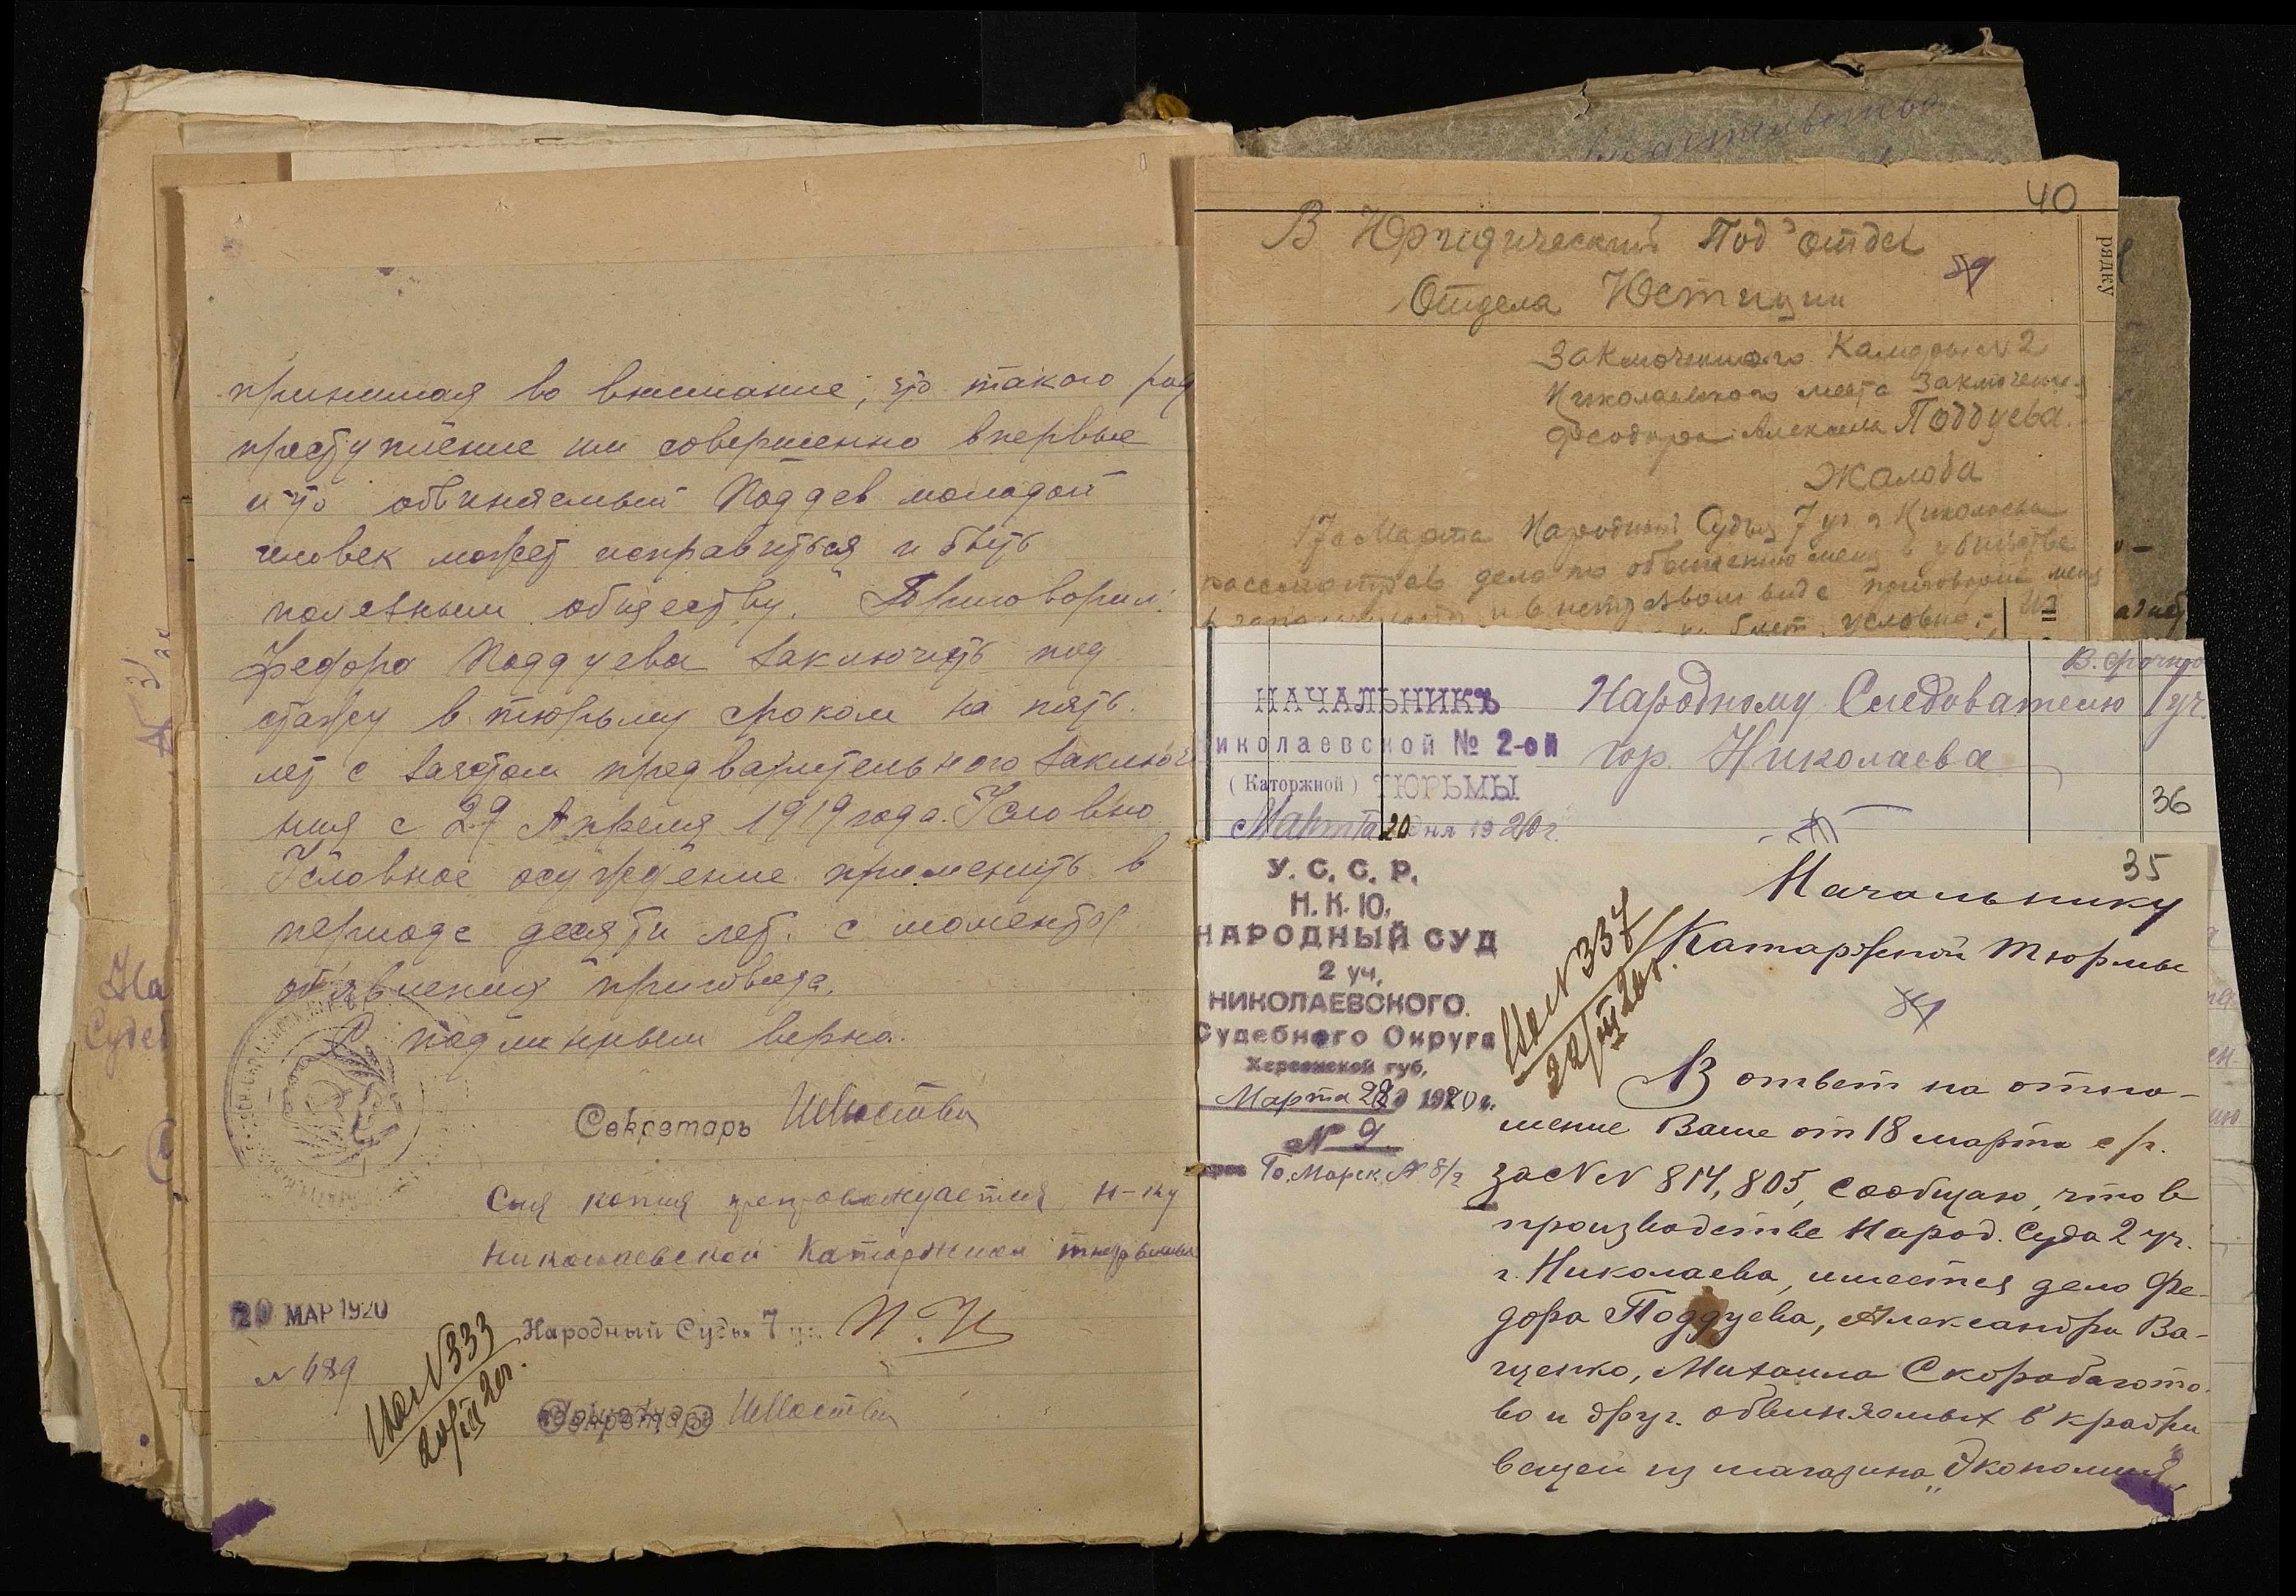 принимая во внимание, что такого род
преступление им совершенно впервые
и что обвиняемый Поддев молодой
человек может исправиться и быть
полезным обществу. Приговорил:
Федора Поддуева заключить под
стражу в тюрьму сроком на пять
лет с зачетом предварительного заключе
ния с 29 Апреля 1919 года. Условно
Условное осуждение применить в
периоде десяти лет с момента
объявления приговора.
С подлинным верно.
Секретарь
Сия копия препровождается Н-ку
Николаевской Каторжной тюрьмы
20 МАР 1920
Народный Судья 7 уч.
N 689
Секретарь
Вх. N 333
20/III 20г.
На
Судеб
40
В Юридический Под'отдел
89
Отдела Юстиции
рядку
Заключенного Камеры N 2
Николаевского места Заключения
Феодора Поддуева.
Жалоба
17го Марта Народный Судья 7 уч г Николаева
рассмотрев дело по обвинению меня в убийстве
и в нетрезвом виде приговорил меня
лет, условно.- Из
В. срочно
НАЧАЛЬНИКЪ
Николаевской № 2-ой
(Каторжной) ТЮРЬМЫ
Марта 20 дня 1920 г.
Народному Следователю 1 уч.
гор. Николаева
36
У. С. С. Р.
Н. К. Ю.
НАРОДНЫЙ СУД
2 уч.
НИКОЛАЕВСКОГО
Судебного Округа
Херсонской губ.
Марта 1920 г.
N 9
35
Начальнику
Катаржной Тюрьмы
Вх. N 337
22/III 20г.
84
В ответ на отно-
шение Ваше от 18 марта с/г.
за NN 814, 805, сообщаю, что в
производстве Народ. Суда 2 уч.
г. Николаева, имеется дело Фе-
дора Поддуева, Александра Ва-
щенко, Михаила Скоробагато-
во и друг. обвиняемых в кражи
вещей из магазина „Экономия"